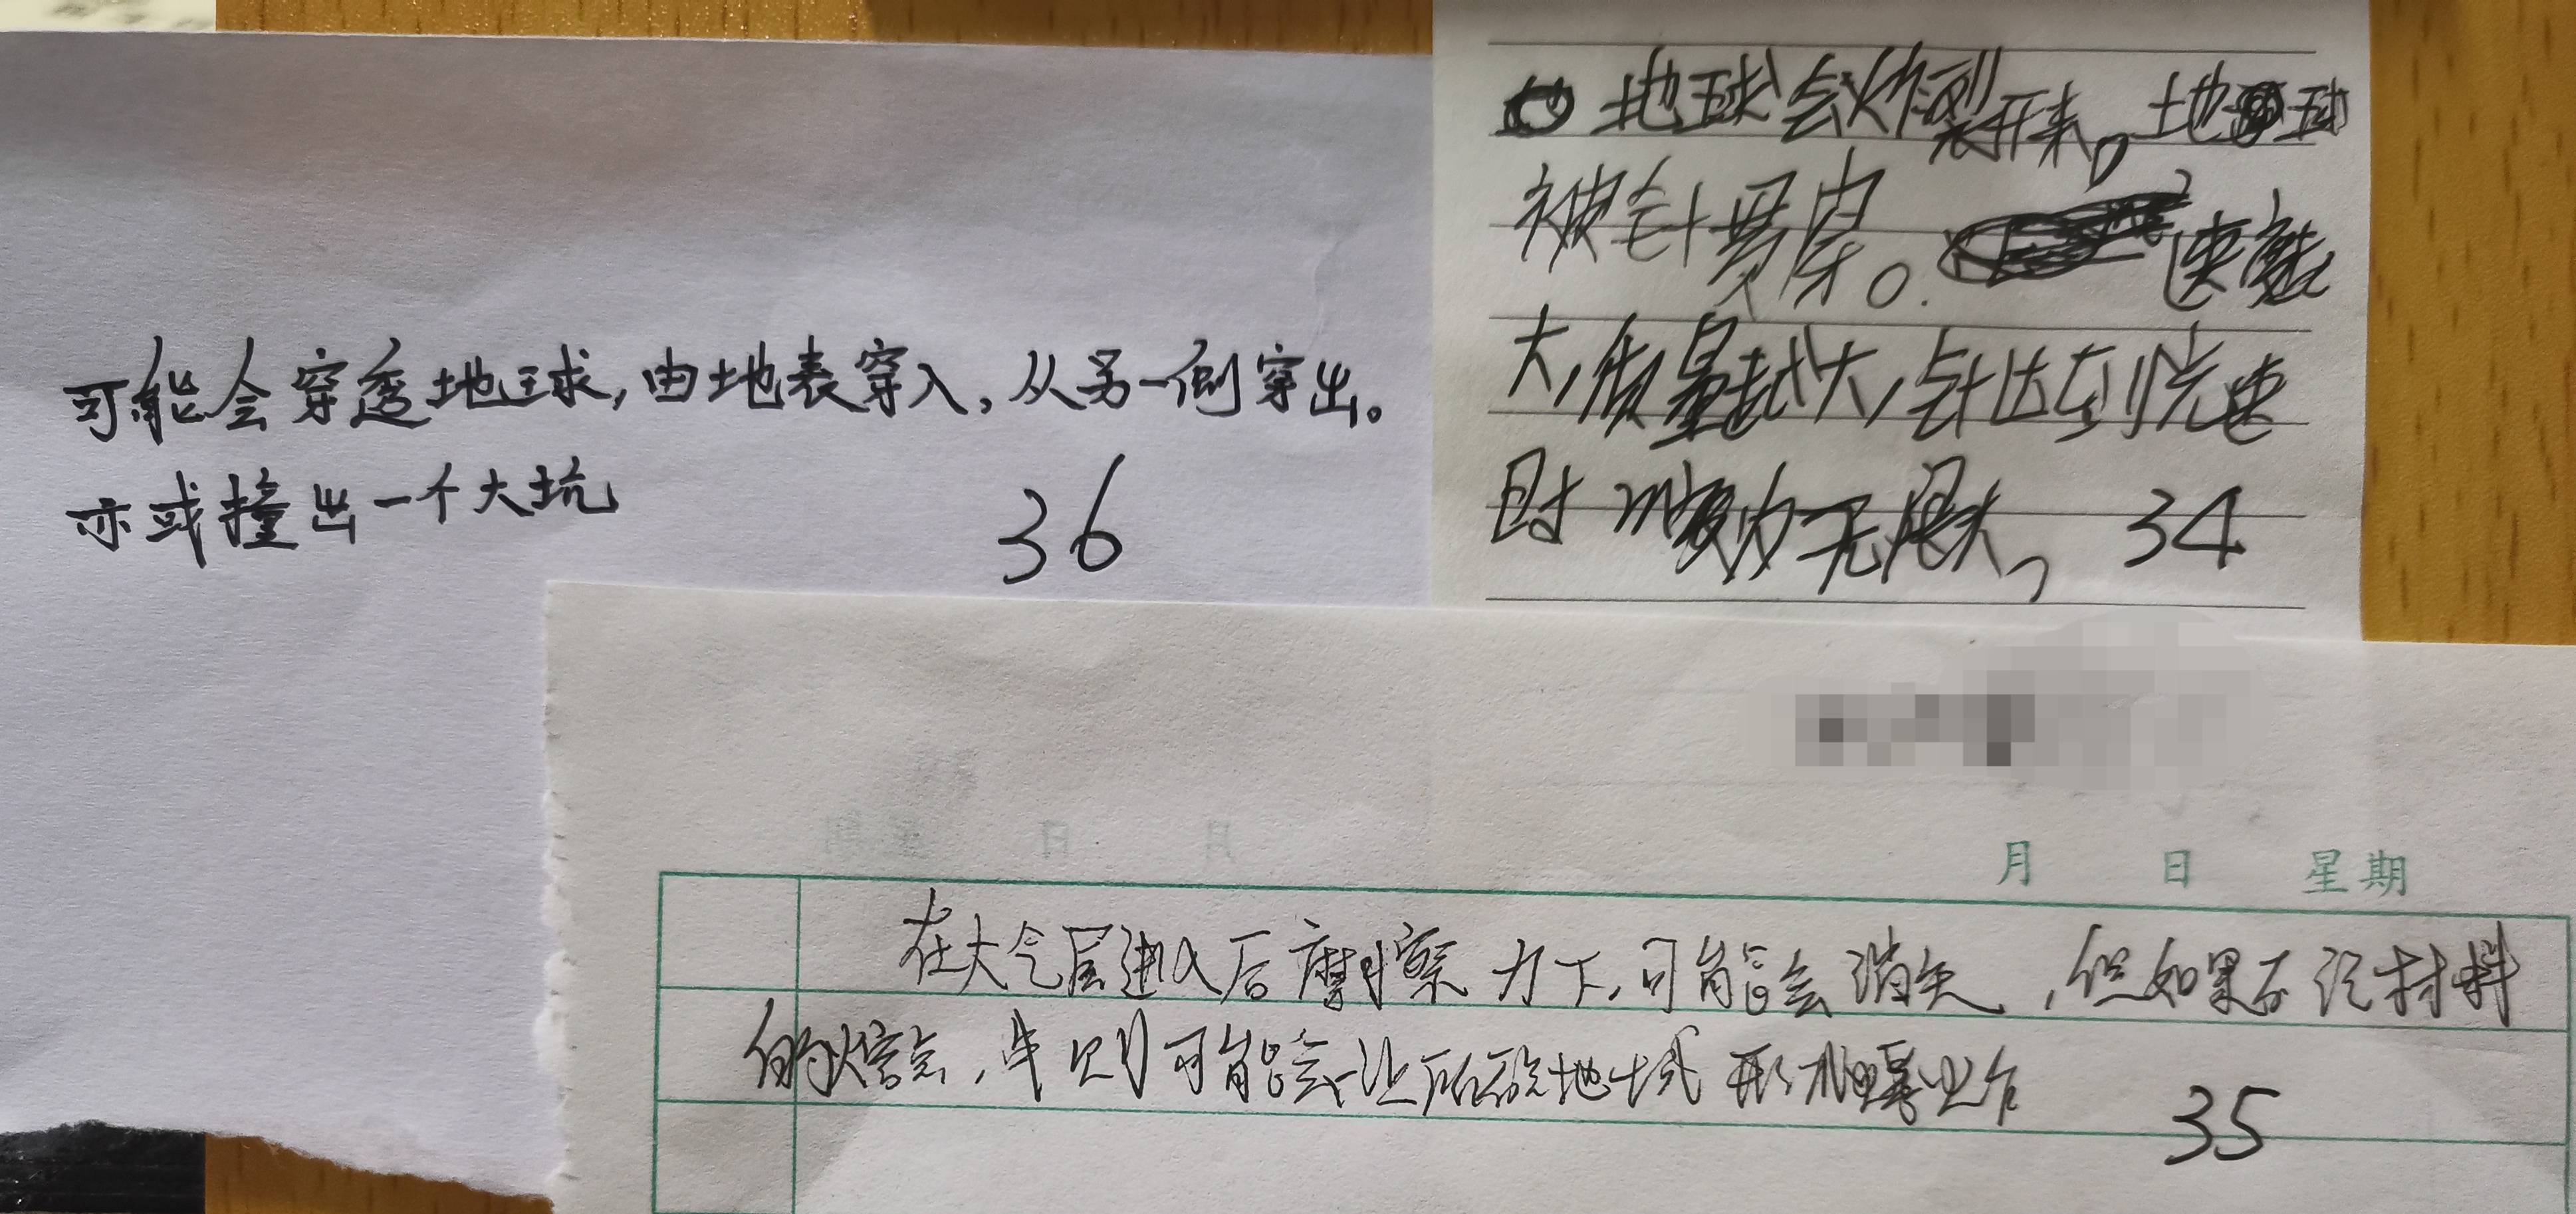 可能会穿透地球,由地表穿入,从另一侧穿出。
亦或撞出一个大坑
36
地球会炸裂开来。地球
被针贯穿。速度越
大,质量越大,针达到光速
时m变为无限大,34
月 日 星期
在大气层进入后摩擦力下,可能会消失,但如果不论材料
的熔点,牛则可能会让所设地域形成爆炸
35